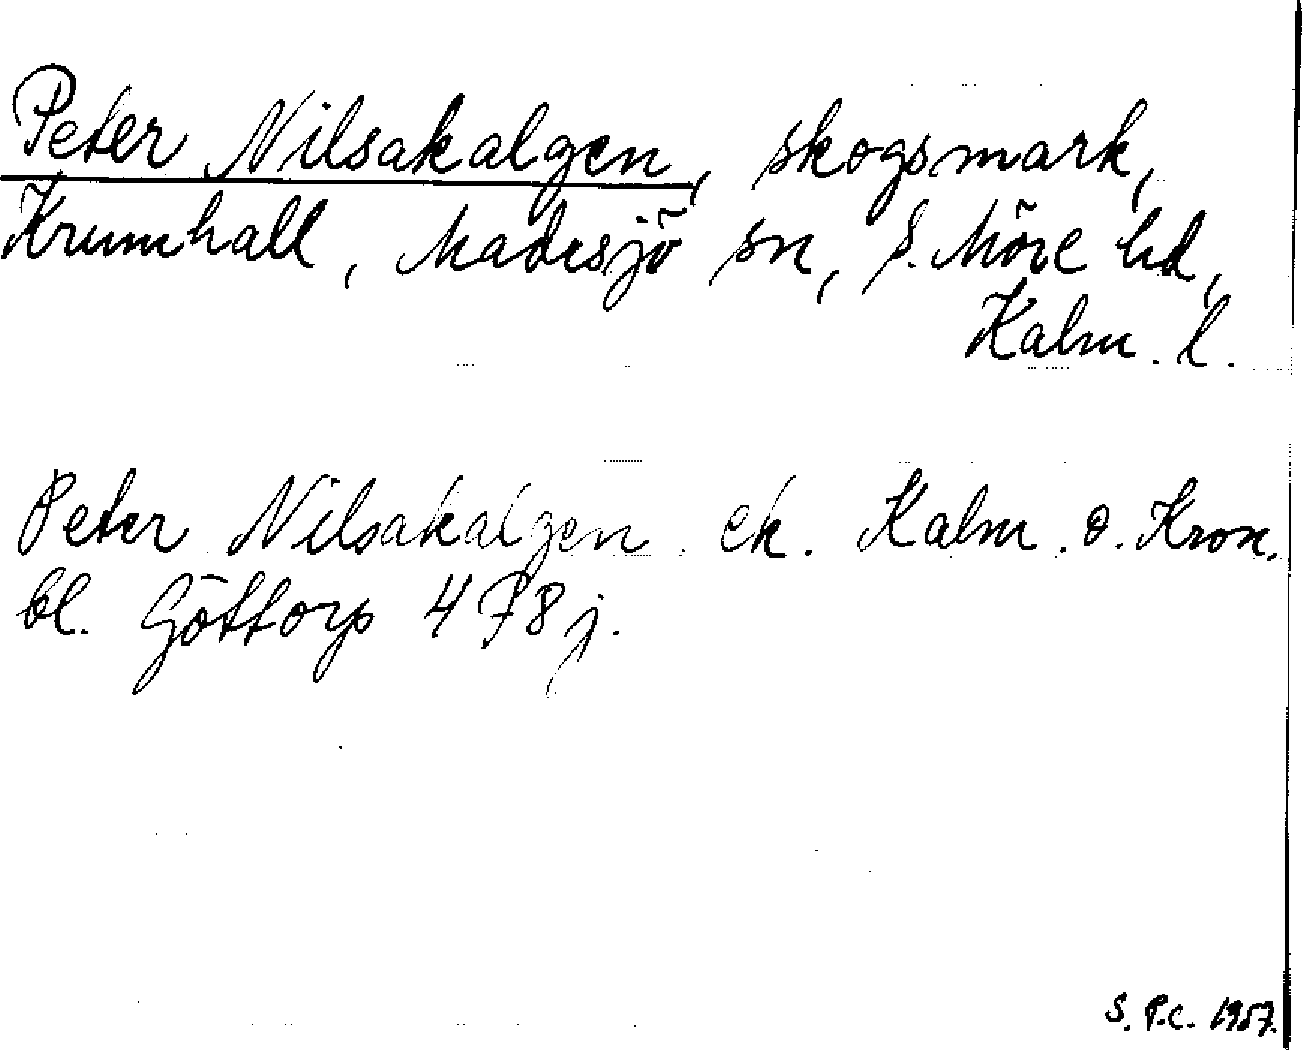 Peter Nilsakalgen, skogsmark,
Krumhall, Madesjö sn, S. Möre hd,
Kalm. l.
Peter Nilsakalgen. ek. Kalm. o. Kron.
bl. Göttorp 4 F8 j.
S. P.C. 1957.